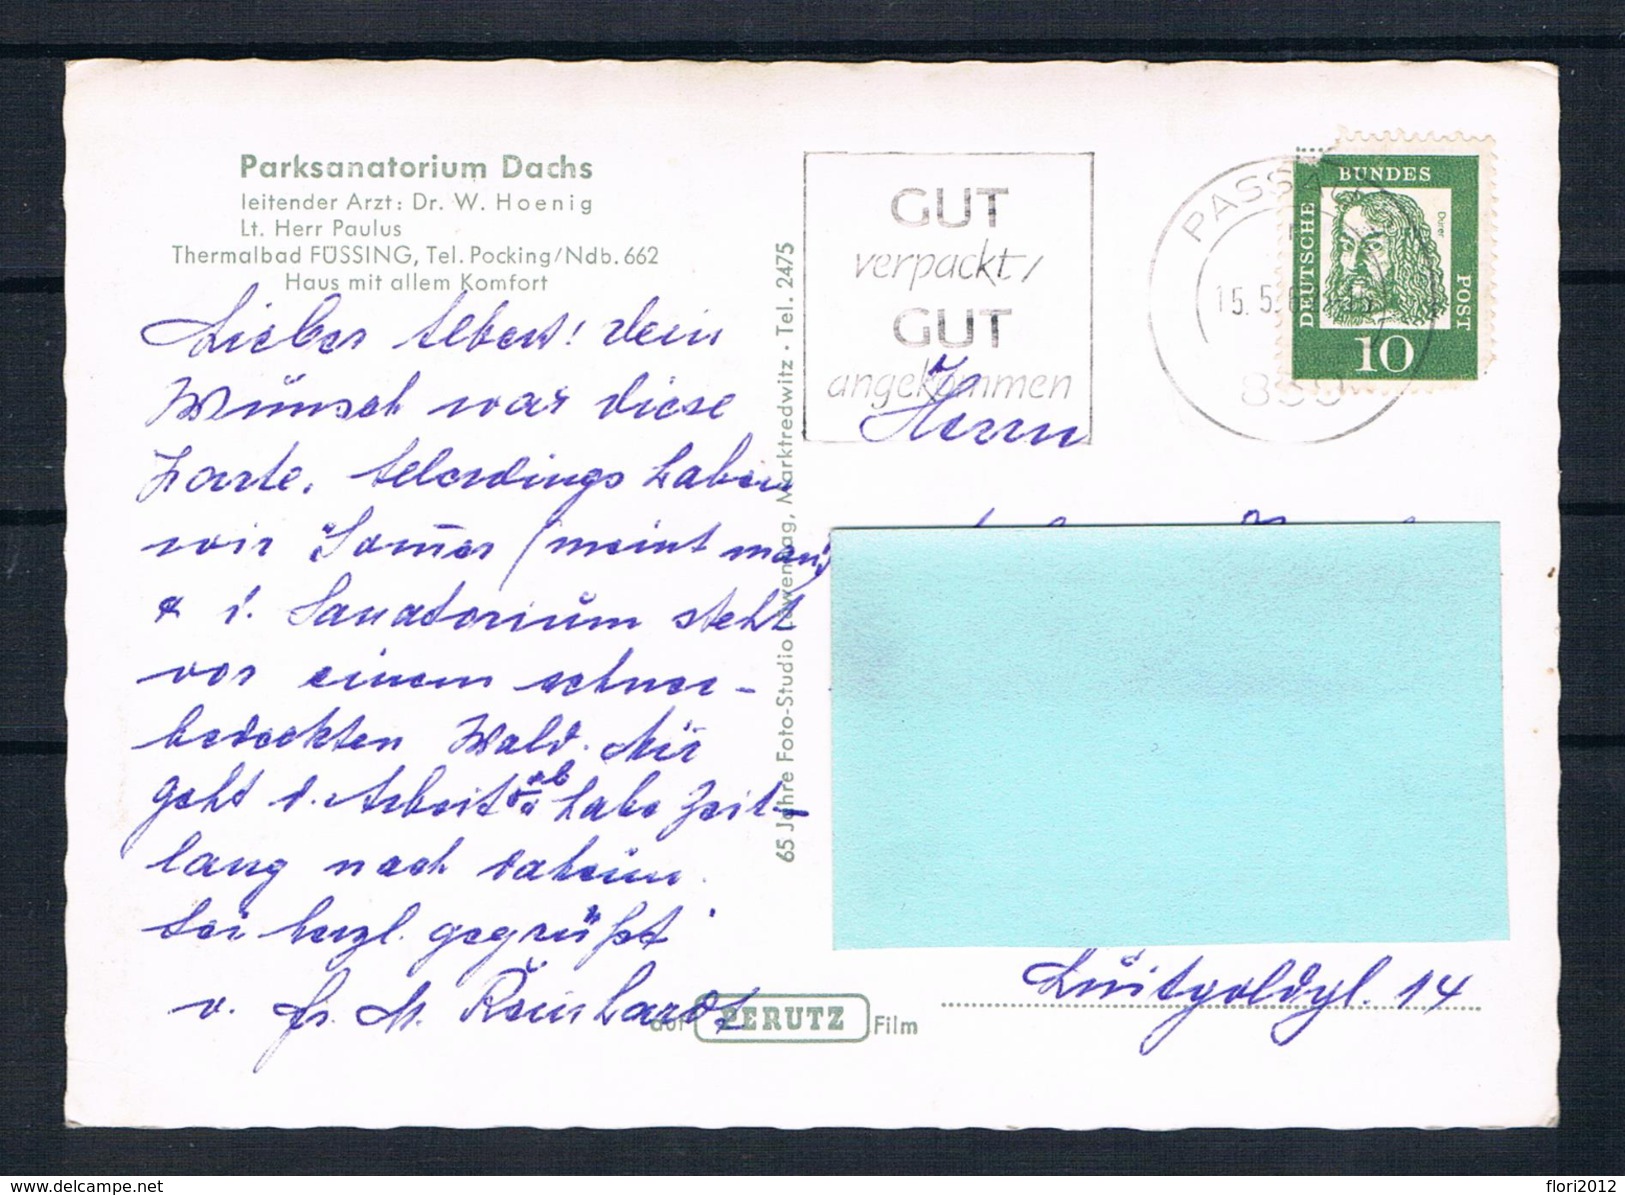 Parksanatorium Dachs
leitender Arzt: Dr. W. Hoenig
Lt. Herr Paulus
Thermalbad FÜSSING, Tel. Pocking/Ndb. 662
Haus mit allem Komfort
Lieber Albert! Dein
Wunsch war diese
Karte. Allerdings haben
wir "Somer (meint man)
& d. Sanatorium steht
vor einem schnee-
bedeckten Wald. Mir
geht d. Arbeit ab
u habe Zeit-
lang nach daheim.
Sei herzl. gegrüßt
v. Fr. M. Reinhardt
65 Jahre Foto-Studio Löwenhag, Marktredwitz · Tel. 2475
auf PERUTZ Film
GUT
verpackt/
GUT
angekommen
PASSAU
15.5.6
DEUTSCHE BUNDES POST
Dürer
10
Herrn
Luitpoldpl. 14
delcampe.net
flori2012